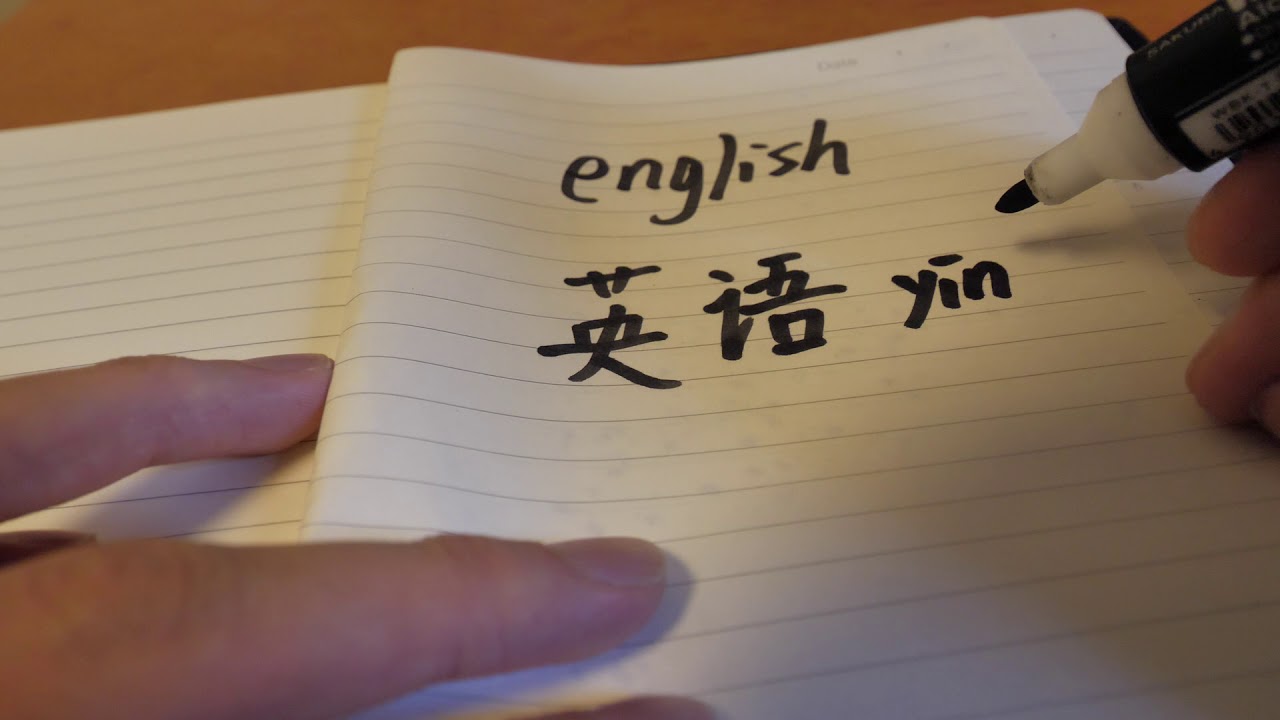 Date
english
英语 yin
SAKURA